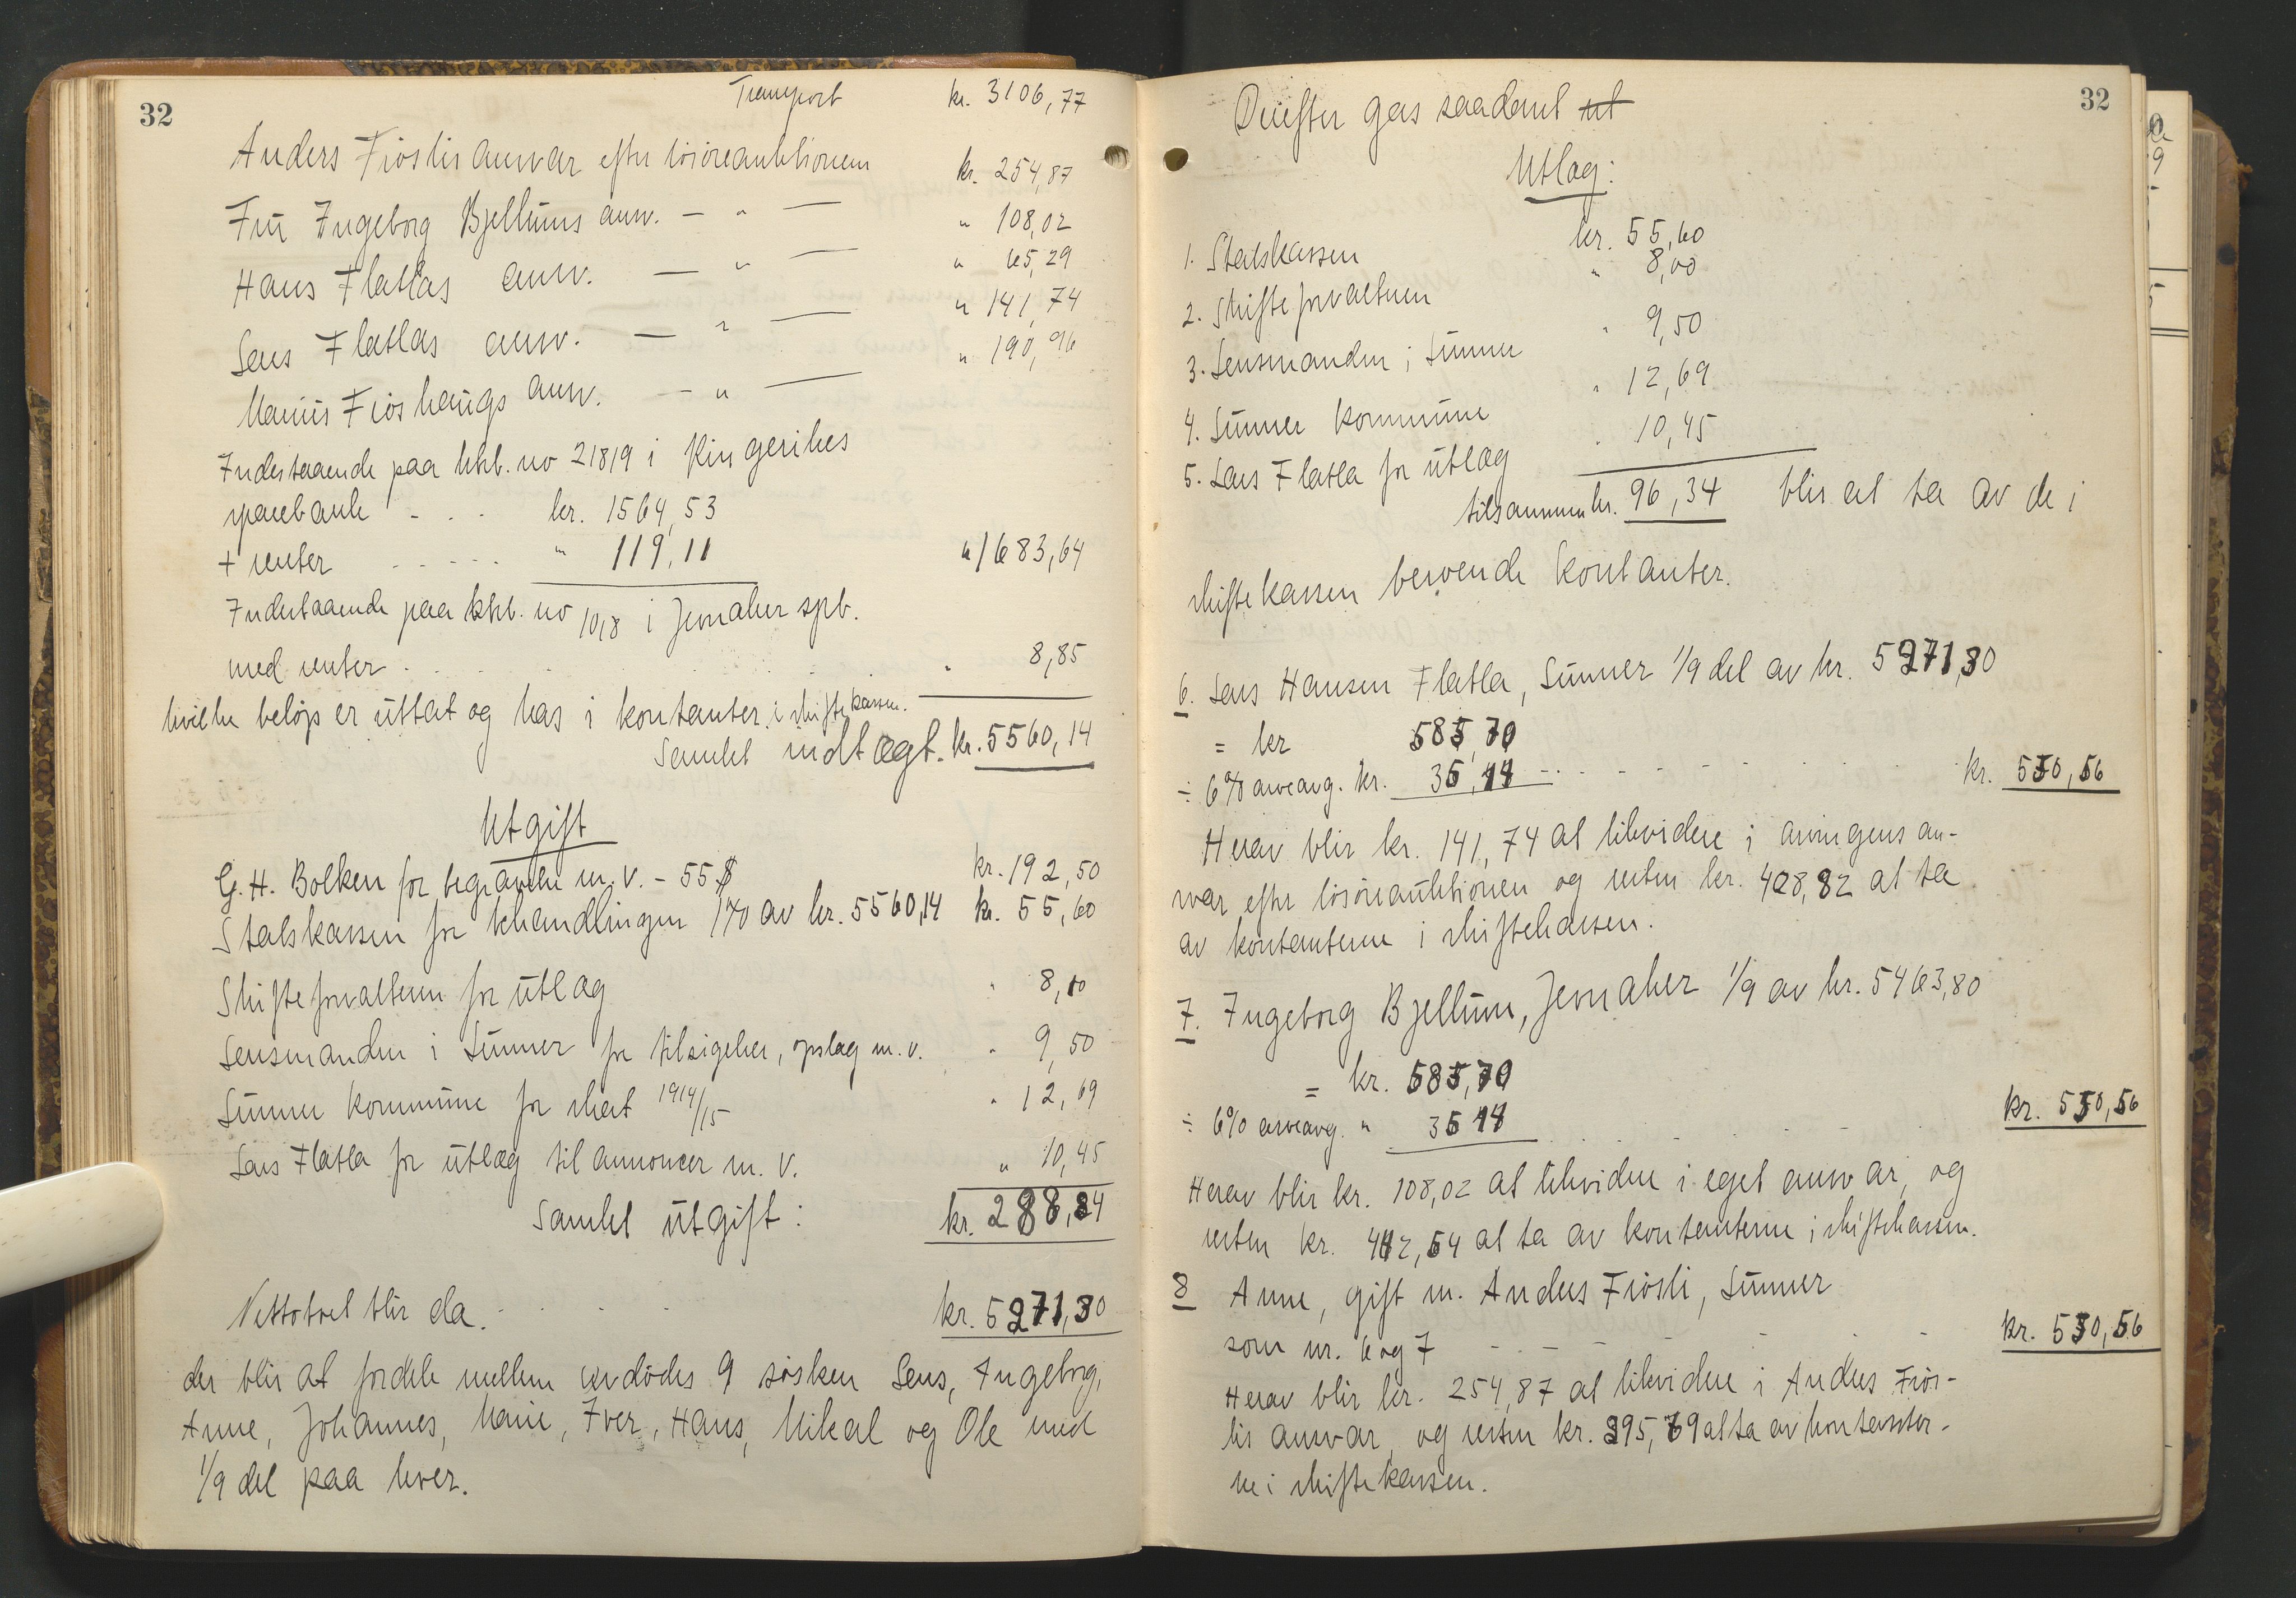 32
Transport kr. 3106,77
Anders Fiøslis ansvar efter løsøreauktionen kr. 254,87
Fru Ingeborg Bjellums ansv. — " — " 108,02
Hans Flatlas ansv. — " — " 65,29
Lars Flatlas ansv. — " — " 141,74
Marius Fiøshaugs ansv. — " — " 190,96
Indestaaende paa bkb. no 21819 i Ringerikes
sparebank - . . kr. 1564,53
+ renter . . . . . " 119,11 " 1683,64
Indestaaende paa bkb. no 1018 i Jevnaker spb.
med renter . . . . . " 8,85
hvilke beløp er uttat og has i kontanter i skiftekassen.
Samlet indtægt. kr. 5560,14
Utgift
G. H. Bolken for begravelse m. v. - 55 $ kr. 192,50
Statskassen for behandlingen 1% av kr. 5560,14 kr. 55,60
Skifteforvalteren for utlæg " 8,10
Lensmanden i Lunner for tilsigelser, opslag m. v. " 9,50
Lunner kommune for skat 1914/15 " 12,69
Lars Flatla for utlæg til annoncer m. v. " 10,45
Samlet utgift: kr. 288,84
Nettoboet blir da . . . . kr. 5271,30
der blir at fordele mellem avdødes 9 søsken Lars, Ingeborg,
Anne, Johannes, Marie, Iver, Hans, Mikal og Ole med
1/9 del paa hver.
32
Derefter gas saadant ut
Utlæg:
1. Statskassen kr. 55,60
2. Skifteforvalteren " 8,00
3. Lensmanden i Lunner " 9,50
4. Lunner kommune " 12,69
5. Lars Flatla for utlæg " 10,45
tilsammen kr. 96,34 blir at ta av de i
skiftekassen beroende kontanter.
6. Lars Hansen Flatla, Lunner 1/9 del av kr. 5271,30
= kr 585,70
÷ 6% arveavg. kr. 35,14 - . . - - - - . . . kr. 550,56
Herav blir kr. 141,74 at likvidere i arvingens an-
svar efter løsøreauktionen og resten kr. 408,82 at ta
av kontanterne i skiftekassen.
7. Ingeborg Bjellum, Jevnaker 1/9 av kr. 5463,80
= kr. 585,70
÷ 6% arveavg. " 35 14 . . . . . kr. 550,56
Herav blir kr. 108,02 at likvidere i eget ansvar, og
resten kr. 442,54 at ta av kontanterne i skiftekassen.
8 Anne, gift m. Anders Fiøsli, Lunner
som nr. 6 og 7 - - - - - - kr. 550,56
Herav blir kr. 254,87 at likvidere i Anders Fiøs-
lis ansvar og resten kr. 295,69 at ta av kontanter-
ne i skiftekassen.